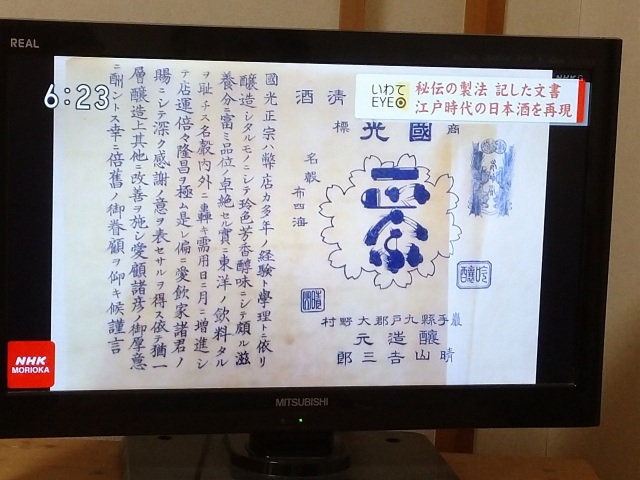 REAL
6:23
NHKG
いわて
EYE
秘伝の製法 記した文書
江戸時代の日本酒を再現
酒清
標商
光國
正宗
名穀
布四海
村野大郡戸九縣手巖
元造釀
郎三吉山晴
國光正宗ハ弊店カ多年ノ経験ト學理トニ依リ
醸造シタルモノニシテ玲色芳香醇味ニシテ頗ル滋
養分ニ富ミ品位ノ卓絶セル實ニ東洋ノ飲料タル
ヲ耻チス名聲内外ニ轟キ需用日ニ月ニ増進シ
テ店運倍々隆昌ヲ極ム是レ偏ニ愛飲家諸君ノ
賜ニシテ深ク感謝ノ意ヲ表セサルヲ得ス依テ猶一
層醸造上其他ニ改善ヲ施シ愛顧諸彦ノ御厚意
ニ酬ントス幸ニ倍舊ノ御眷顧ヲ仰キ候謹言
NHK
MORIOKA
MITSUBISHI